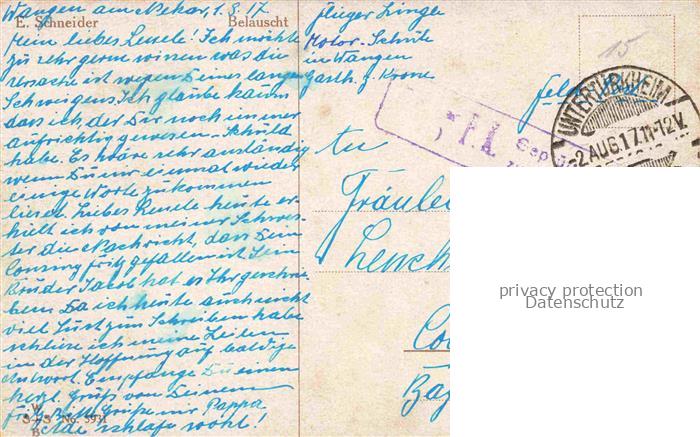 Wangen am Nekar, 1.8.17
E. Schneider Belauscht
Mein liebes Lenele! Ich möchte
zu sehr gerne wissen was die
Ursache ist wegen Deines langen
Schweigens. Ich glaube kaum
dass ich der Dir noch immer
aufrichtig gewesen Schuld
habe. Es wäre sehr anständig
wenn Du mir einmal wieder
einige Worte zukommen
liesest. Liebes Lenele heute er-
hielt ich von meiner Schwes-
ter die Nachricht, dass Dein
Cousing Fritz gefallen ist. Sein
Bruder Jacob hat es Ihr geschrie
ben. Da ich heute auch nicht
viel Lust zum Schreiben habe
schliese ich meine Zeilen
in der Hoffnung auf baldige
Antwort. Empfange Du einen
herzl. Gruß von Deinem
Fritz. Grüße mir Pappa
Ade schlafe wohl!
W
S+S No. 5931
B
Flieger
Motor-Schule
in Wangen
Gasth. z. Krone
15
Feldpost
UNTERTÜRKHEIM
-2.AUG.17.11-12V.
Gep
An
Fräulei
Lench
privacy protection
Datenschutz